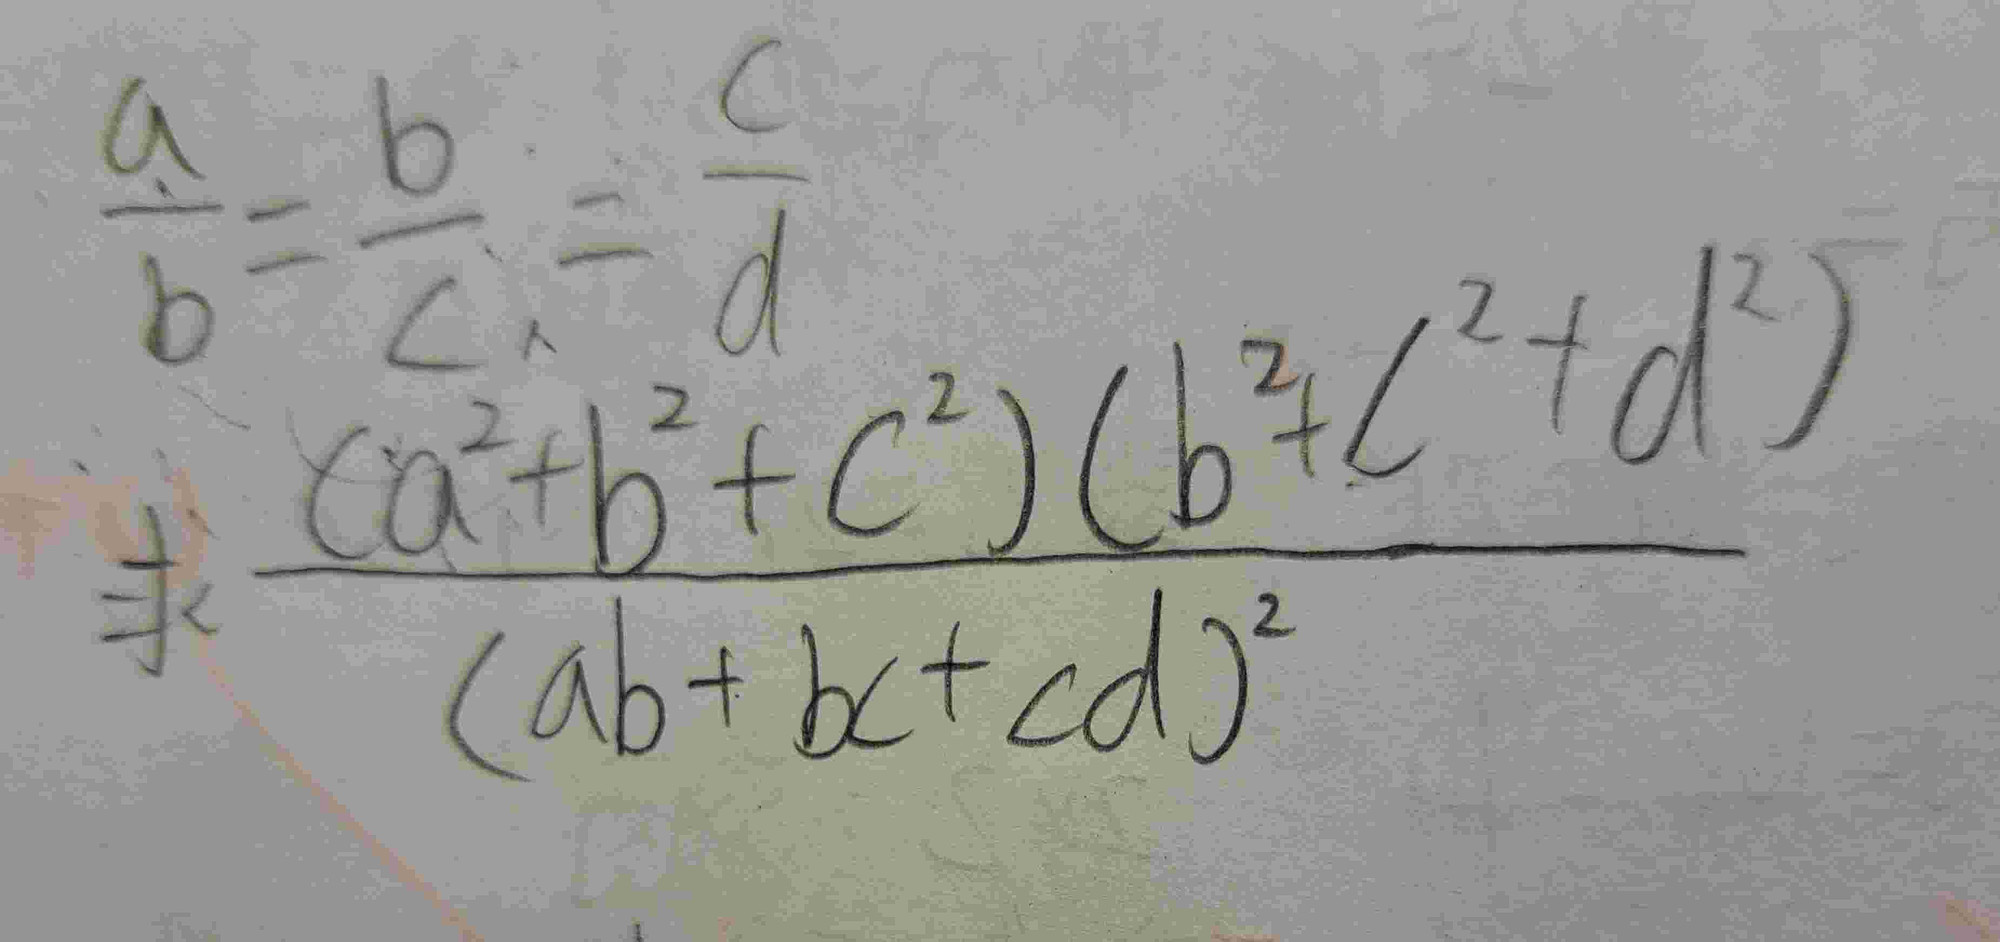 a/b = b/c = c/d
求 (a²+b²+c²)(b²+c²+d²) / (ab+bc+cd)²